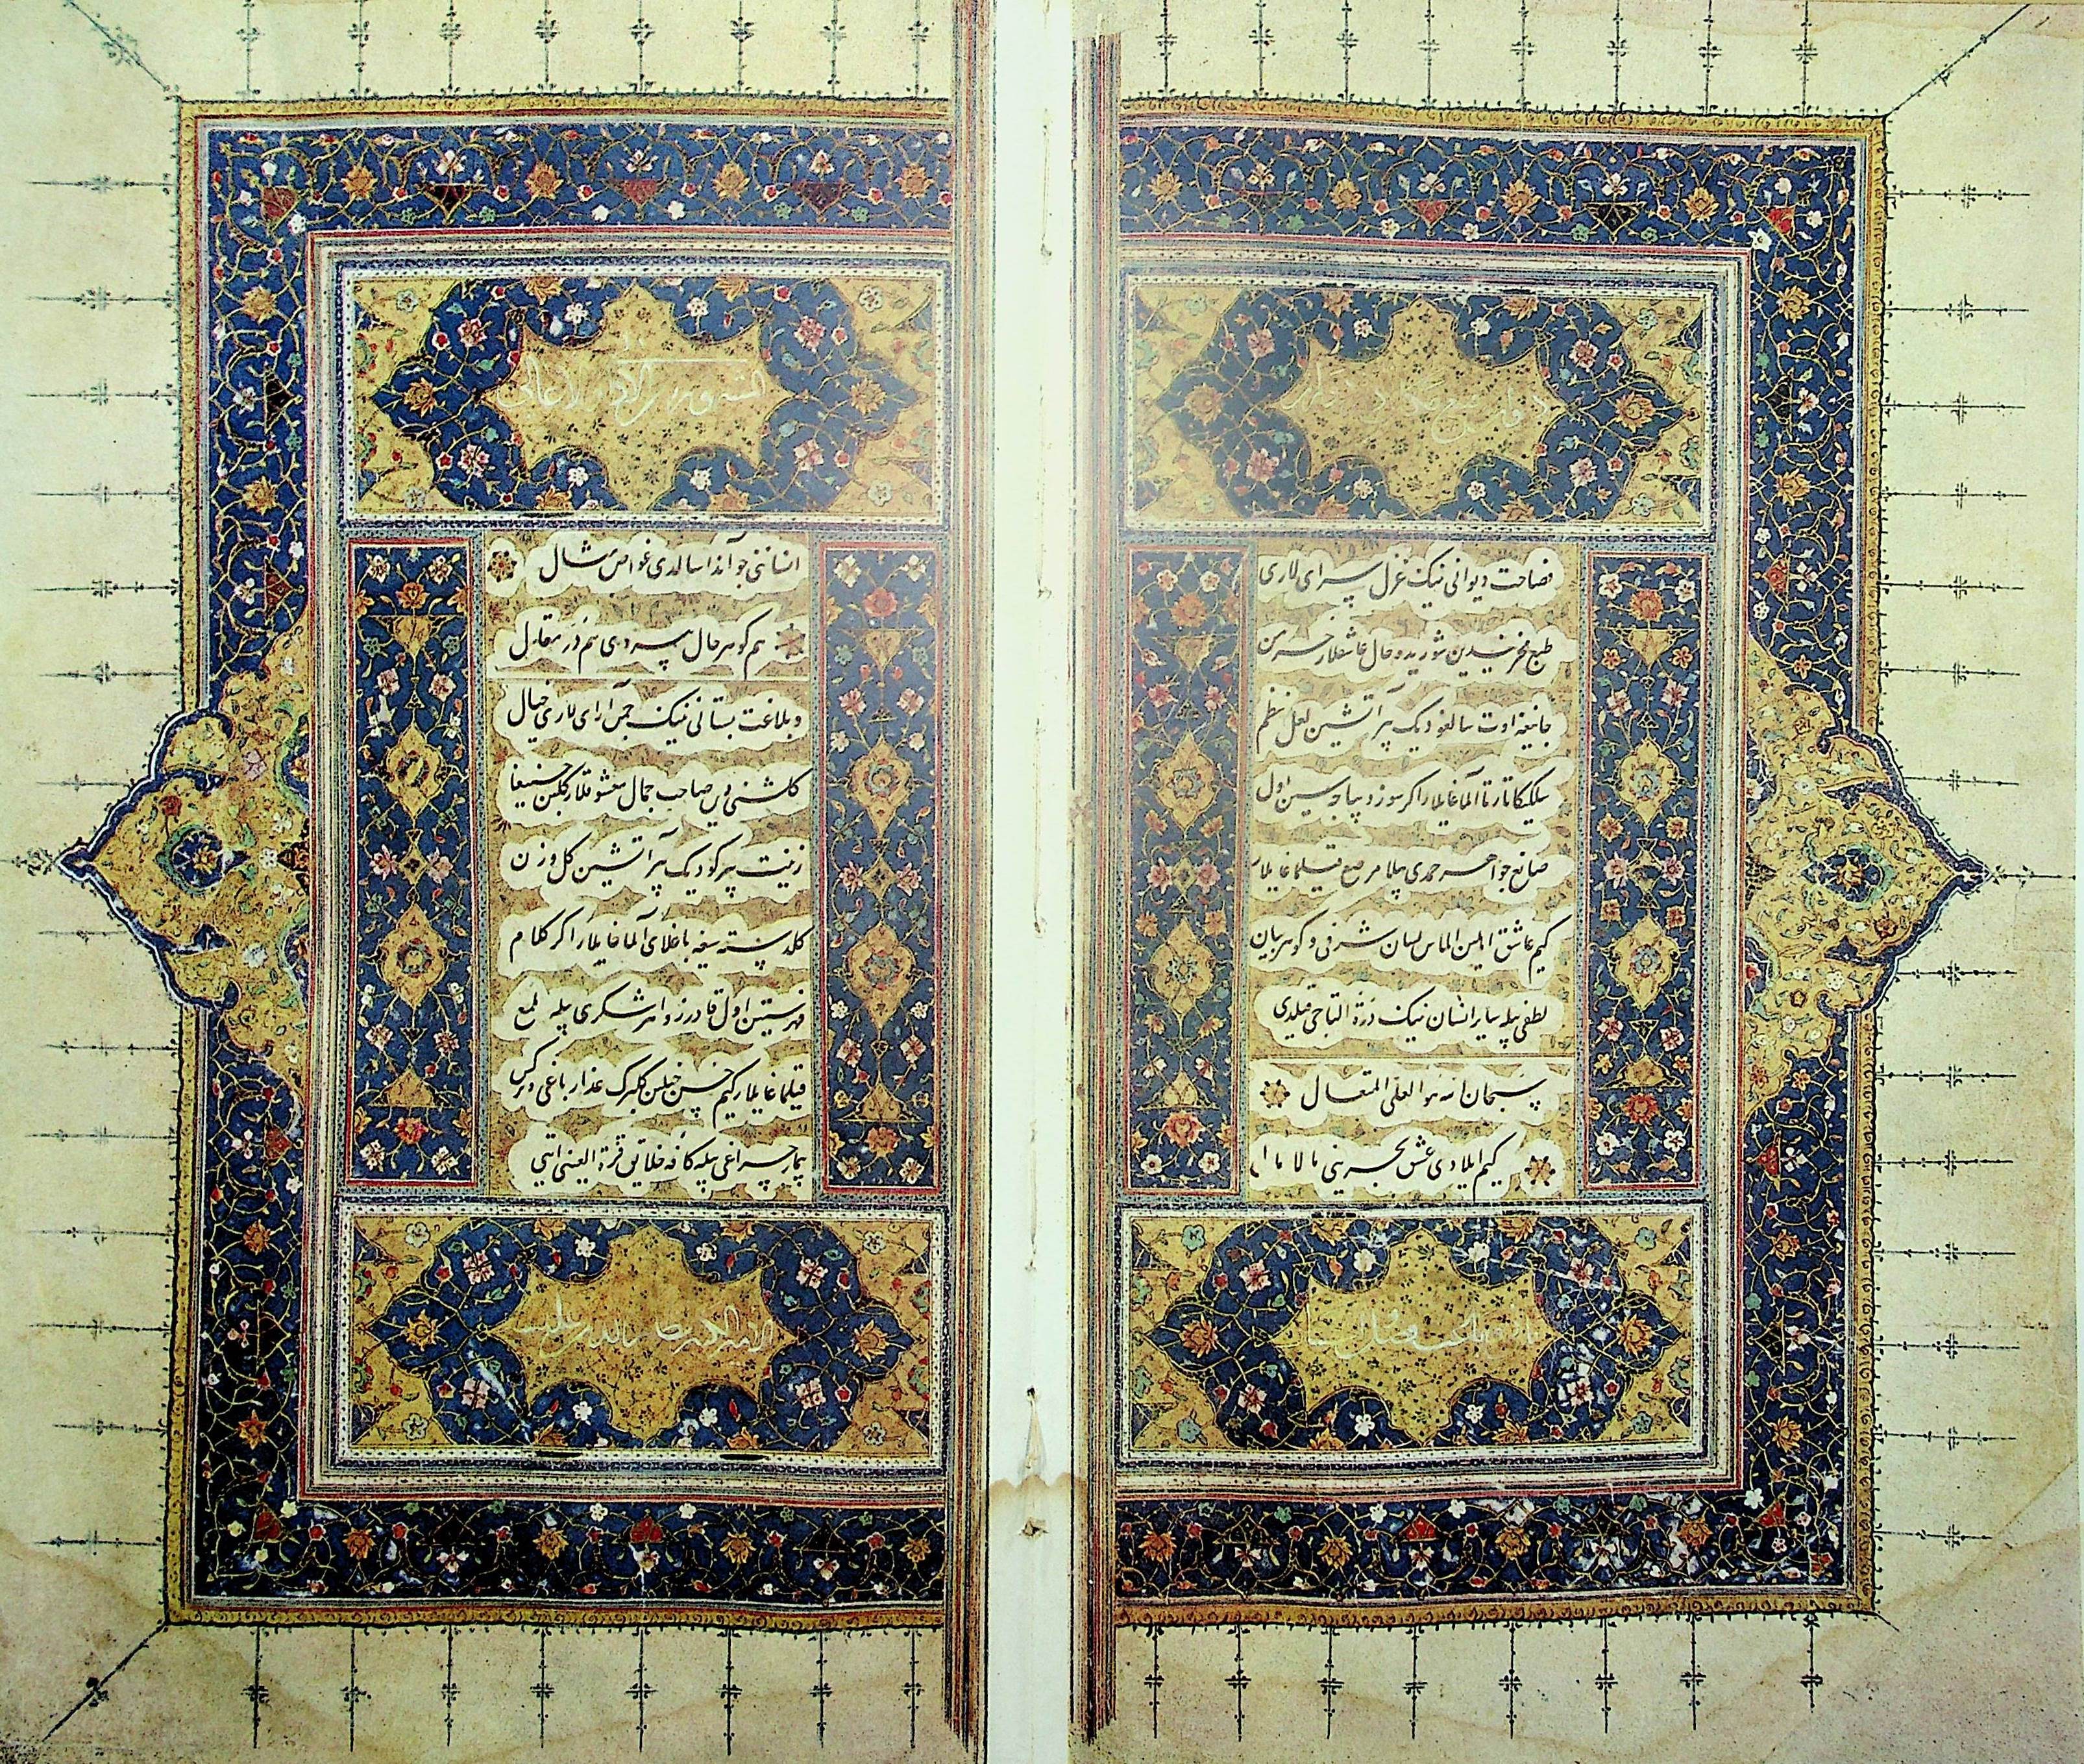 فصاحت دیوانی نینک غزل سرای لاری
طبع مخزنیدین شوریده حال عاشقلار خرمن
جانیغه اوت سالغودیک بیر آتشین لعل نظم
سلکیکا تارتا آلماغایلار اکر سوز دیباجه سین اول
صانع جواهر حمدی بیلا مرصع قیلماغایلار
کیم عاشق ایلین الماس لسان شرفی و کوهر بیان
لطفی بیله سایر انسان نینک درة التاجی قیلدی
سبحان الله هو العلی المتعال
کیم ایلادی عشق بحرینی مالامال
انساننی جو آندا سالدی غواص مثال
هم کوهر حال بیردی هم در مقال
و بلاغت بستانی نینک چمن آرای لاری خیال
کلشنی دین صاحب جمال معشوقلار کلبن حسنیغا
زینت بیرکودیک بیر آتشین کل وزن
کلدسته سیغه باغلای آلماغایلار اکر کلام
فهرستین اول قادر زواهر شکری بیله
قیلماغایلار کیم حسن خیلین کلبرک عذار باغی و نرکس
بیمار چراغی بیله کافه خلایق قرة العینی ایتی